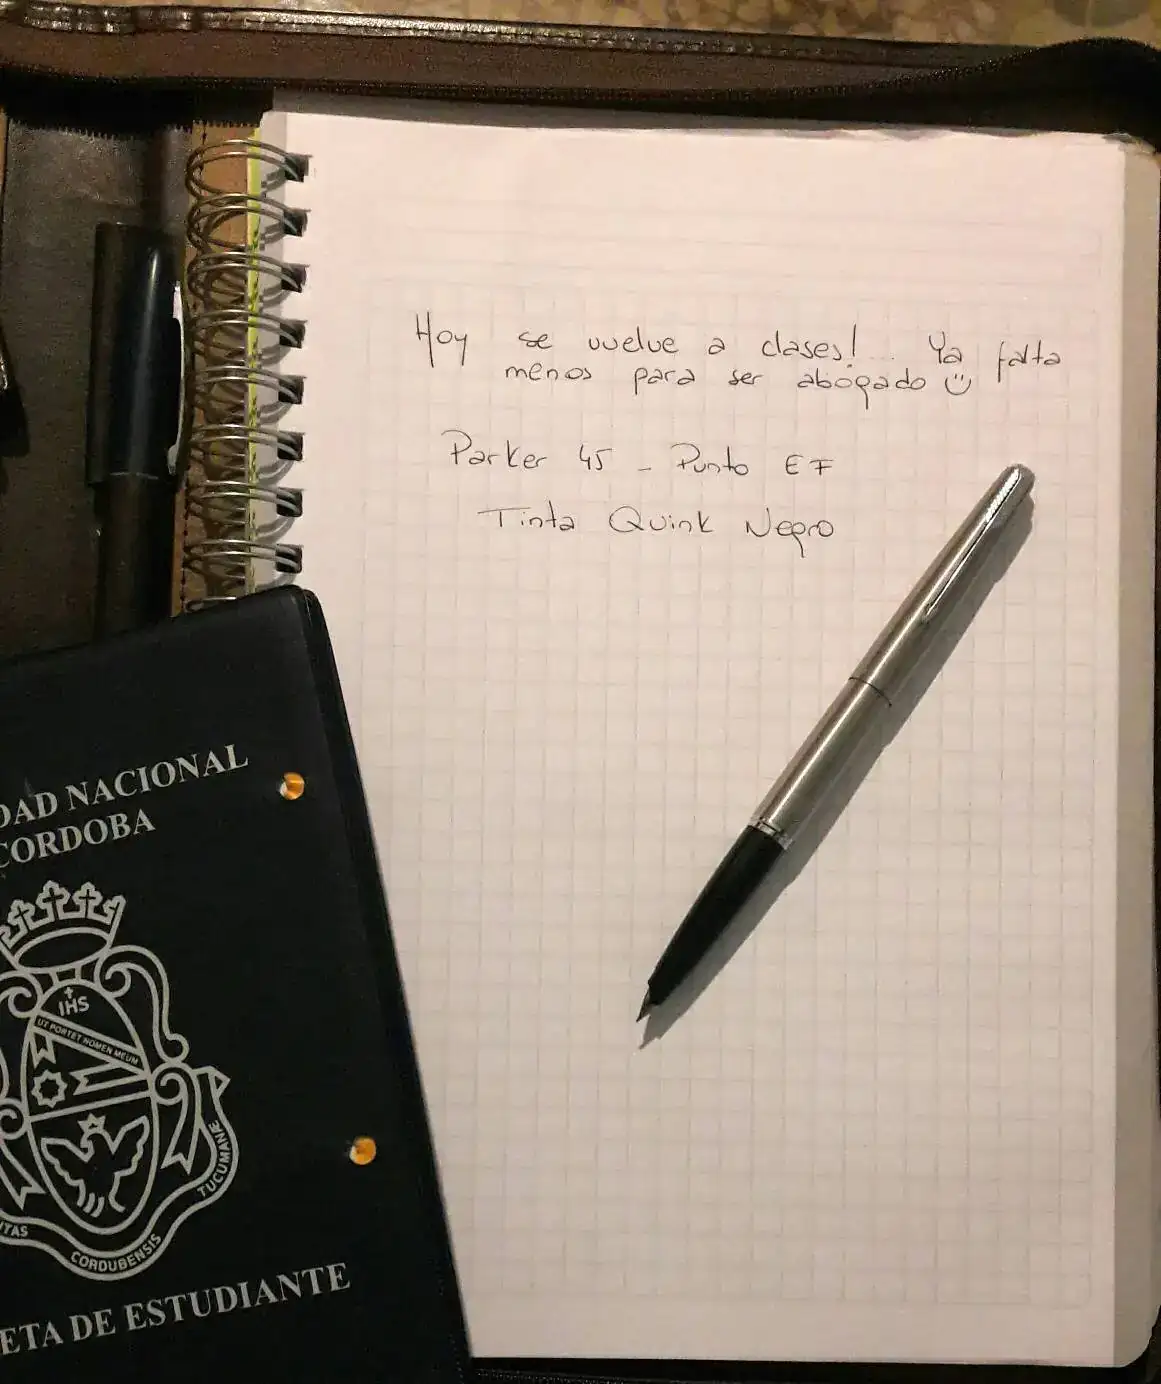 Hoy se vuelve a clases!.. Ya falta
menos para ser abogado :)
Parker 45 - Punto EF
Tinta Quink Negro
DAD NACIONAL
CORDOBA
IHS
UT PORTET NOMEN MEUM
TUCUMANE
TAS
CORDUBENSIS
ETA DE ESTUDIANTE